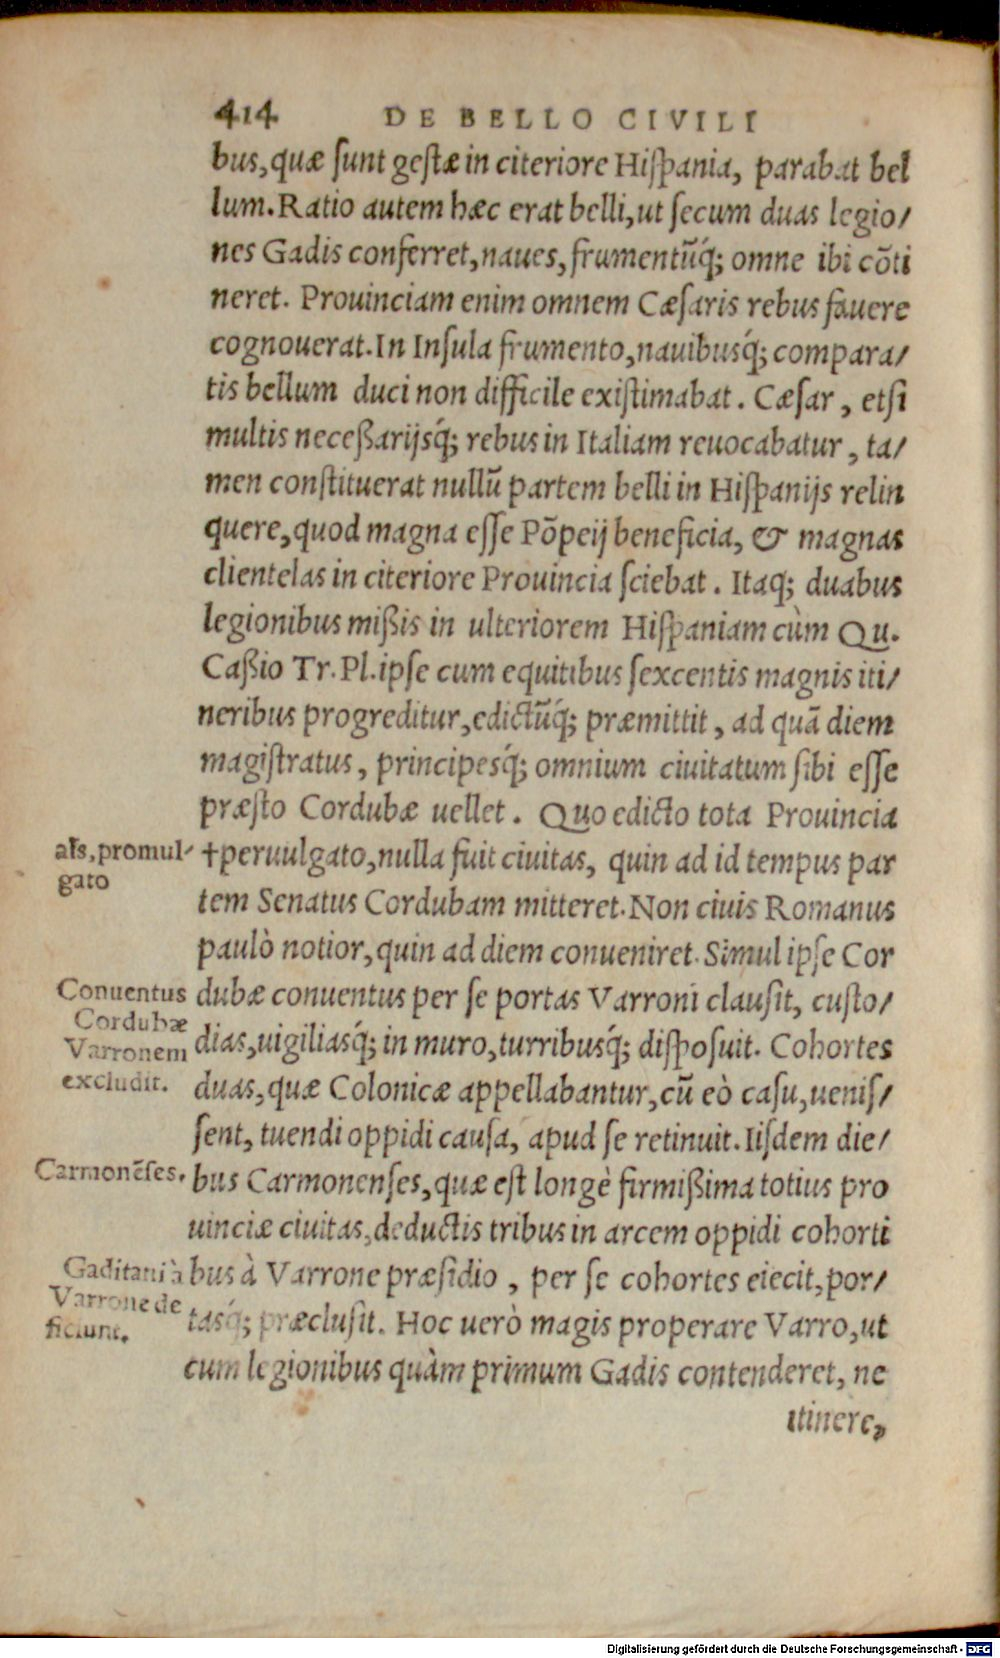 414 DE BELLO CIVILI
bus, quæ ſunt geſtæ in citeriore Hiſpania, parabat bel
lum. Ratio autem hæc erat belli, ut ſecum duas legio/
nes Gadis conferret, naues, frumentũq́; omne ibi cõti
neret. Prouinciam enim omnem Cæſaris rebus fauere
cognouerat. In Inſula frumento, nauibusq́; compara/
tis bellum duci non difficile exiſtimabat. Cæſar, etſi
multis neceßarijsq́; rebus in Italiam reuocabatur, ta/
men conſtituerat nullũ partem belli in Hiſpanijs relin
quere, quod magna eſſe Põpeij beneficia, & magnas
clientelas in citeriore Prouincia ſciebat. Itaq; duabus
legionibus mißis in ulteriorem Hiſpaniam cùm Qu.
Caßio Tr. Pl. ipſe cum equitibus ſexcentis magnis iti/
neribus progreditur, edictũq́; præmittit, ad quã diem
magiſtratus, principesq́; omnium ciuitatum ſibi eſſe
præſto Cordubæ uellet. Quo edicto tota Prouincia
als, promul- †peruulgato, nulla fuit ciuitas, quin ad id tempus par
gato
tem Senatus Cordubam mitteret. Non ciuis Romanus
paulò notior, quin ad diem conueniret. Simul ipſe Cor
Conuentus dubæ conuentus per ſe portas Varroni clauſit, cuſto/
Cordubæ
Varronem dias, uigiliasq́; in muro, turribusq́; diſpoſuit. Cohortes
excludit. duas, quæ Colonicæ appellabantur, cũ eò caſu, ueniſ/
ſent, tuendi oppidi cauſa, apud ſe retinuit. Iiſdem die/
Carmonẽſes. bus Carmonenſes, quæ eſt longè firmißima totius pro
uinciæ ciuitas, deductis tribus in arcem oppidi cohorti
Gaditani à bus à Varrone præſidio, per ſe cohortes eiecit, por/
Varrone de tasq́; præcluſit. Hoc uerò magis properare Varro, ut
ficiunt.
cum legionibus quàm primum Gadis contenderet, ne
itinere,
Digitalisierung gefördert durch die Deutsche Forschungsgemeinschaft - DFG